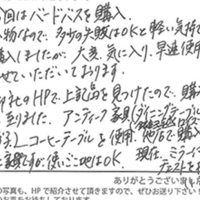 回はバードバスを購入
物なので、多少の失敗はOKと軽い気持で
購入しましたが、大変、気に入り、早速使用
せていただいております。
社のHPで、上記品を見つけたので、購
至りました。アンティーク家具（ダイニングテーブル
、コーヒーテーブルを使用、他店で購入
ですが使いごこ地はOK. 現在 ミラー
ありがとうござい
の写真も、HPで紹介させて頂きますので、ぜひお送り下さい！